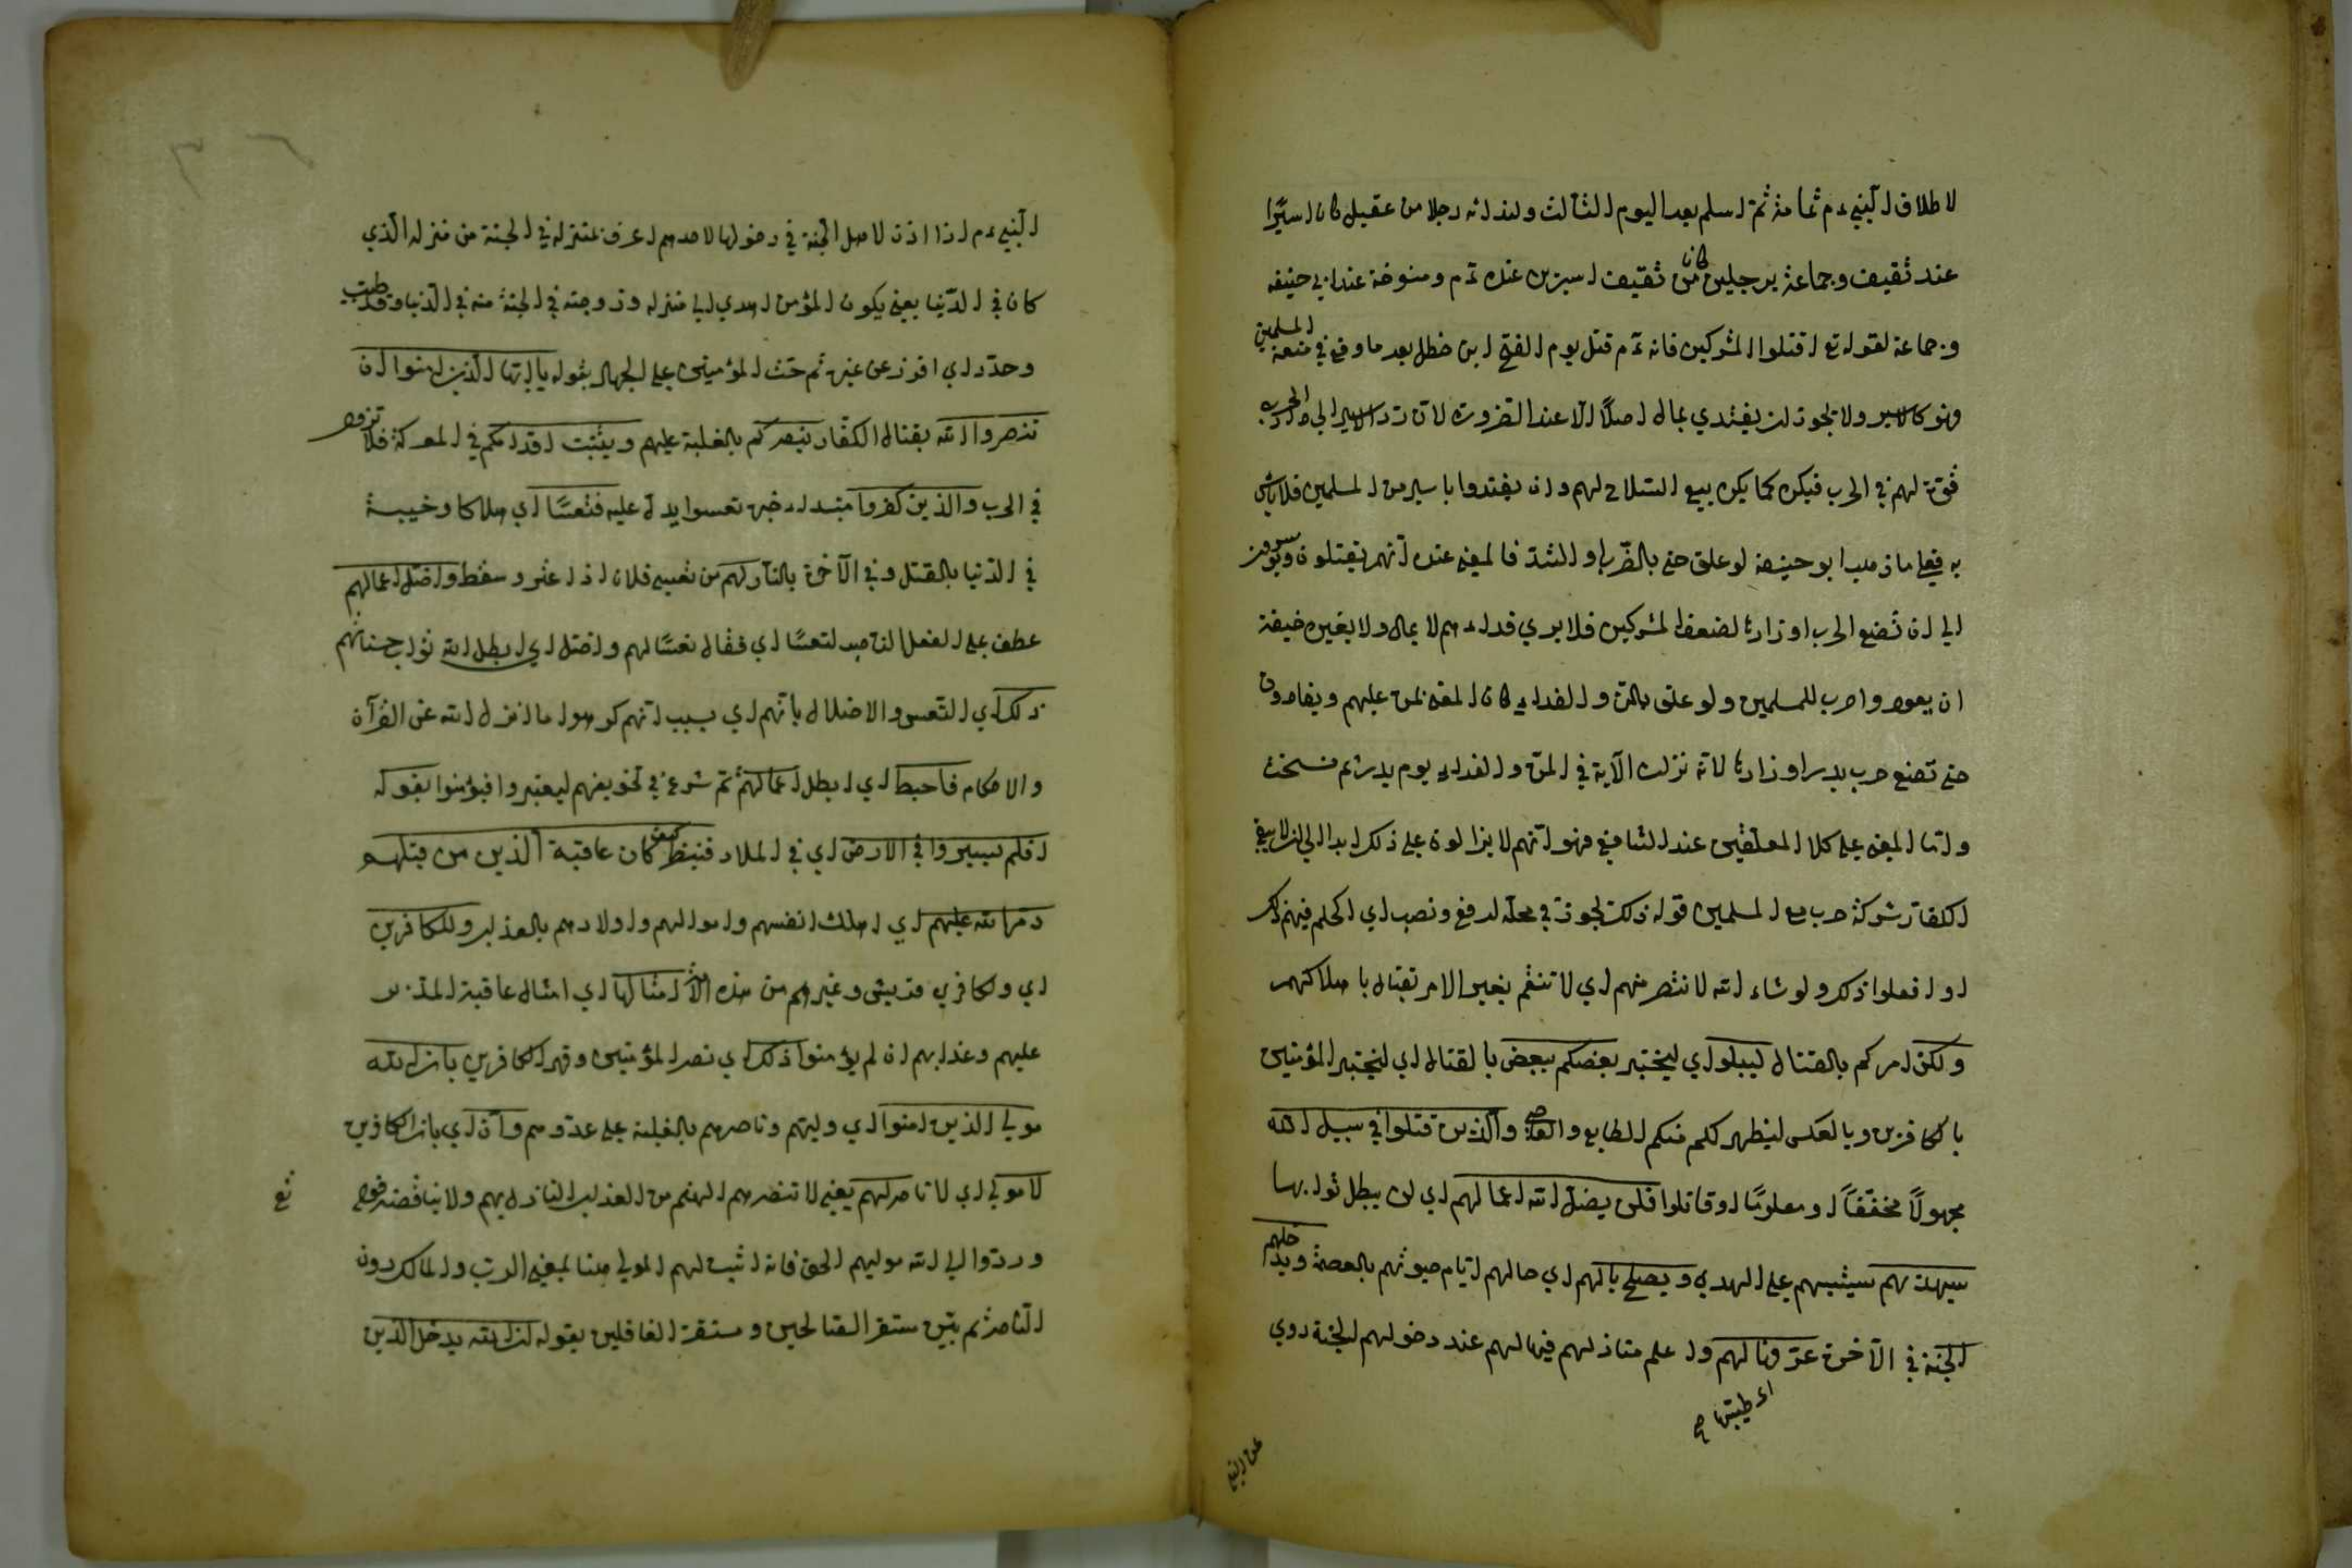 لاطلاق النبي عم ثمامة ثم اسلم بعد اليوم الثالث ولفدائه رجلا من عقيل كان اسيرا
عند ثقيف وجماعة برجلين كانا من ثقيف اسيرين عنده عم ومنسوخة عند ابي حنيفه
وجماعة لقوله تع اقتلوا المشركين فانه عم قتل يوم الفتح ابن خطل بعد ما وقع في منعة المسلمين
وهو كالاسير ولا يجوز ان يفتدي بمال اصلا الا عند الضرورة لان رد الاسير الي دار الحرب
قوة لهم في الحرب فيكره كما يكره بيع السلاح لهم وان يفتدوا باسير من المسلمين فلا باس
به فعلي ما ذهب ابو حنيفة لو علق حتي بالضرب او الشد فالمعني عنده انهم يقتلون ويؤسرون
الي ان تضع الحرب اوزارها لضعف المشركين فلا يري فداءهم لا بمال ولا بغيره خيفة
ان يعودوا حربا للمسلمين ولو علق بالمن والفداء كان المعني يمن عليهم ويفادون
حتي تضع حرب بدر اوزارها لانه نزلت الآية في المن والفداء يوم بدر ثم نسخت
واما المعني علي كلا المعلقين عند الشافعي فهو انهم لا يزالون علي ذلك ابدا الي ان لا يبقي
للكفار شركة حرب مع المسلمين قوله ذلك يجوز في محله الرفع ونصب اي الحكم فيهم ذلك
او افعلوا ذلك ولو شاء الله لانتصر منهم اي لانتقم بغير الامر بقتال باهلاكهم
ولكن امركم بالقتال ليبلو اي ليختبر بعضكم ببعض بالقتال اي ليختبر المؤمنين
بالكافرين وبالعكس ليظهر لكم منكم المطايع والعاصي والذين قتلوا في سبيل الله
مجهولا مخففا او معلوما او قاتلوا فلن يضل الله اعمالهم اي لن يبطل ثوابها
سيهديهم سيثبتهم علي الهدي ويصلح بالهم اي حالهم ايام حيوتهم بالعصمة ويدخلهم
الجنة في الآخرة عرفها لهم واعلم منازلهم فيها لهم عند دخولهم الجنة روي
اي طيبها
عن النبي
النبي عم اذا اذن لاهل الجنة في دخولها لاحدهم اعرف بمنزله في الجنة من منزله الذي
كان في الدنيا يعني يكون المؤمن اهدي الي منزله وزوجته في الجنة منه في الدنيا وقد طيب
وحدد اي افرز عن غيره ثم حث المؤمنين علي الجهاد بقوله يا ايها الذين امنوا ان
تنصروا الله بقتال الكفار ينصركم بالغلبة عليهم ويثبت اقدامكم في المعركة فلا تزول
في الحرب والذين كفروا مبتدا خبره تعسوا يدل عليه فتعسا اي هلاكا وخيبة
في الدنيا بالقتل وفي الآخرة بالنار لهم من تعس فلان اذا عثر وسقط واضل اعمالهم
عطف علي الفعل الناصب لتعسا اي فقال تعسا لهم واضل اي ابطل الله ثواب حسناتهم
ذلك اي التعس والاضلال بانهم اي بسبب انهم كرهوا ما انزل الله عن القرآن
والاحكام فاحبط اي ابطل اعمالهم ثم شرع في تخويفهم ليعتبروا فيؤمنوا بقوله
افلم يسيروا في الارض اي في البلاد فينظروا كيف كان عاقبة الذين من قبلهم
دمر الله عليهم اي اهلك انفسهم واموالهم واولادهم بالعذاب وللكافرين
اي ولكافري قريش وغيرهم من هذه الامة امثالها اي امثال عاقبة
عليهم وعذابهم ان لم يؤمنوا ذلك اي نصر المؤمنين وقهر الكافرين بان الله
مولي الذين امنوا اي وليهم وناصرهم بالغلبة علي عدوهم وان اي بان الكافرين
لا مولي اي لا ناصر لهم يعني لا تنصرهم الهتهم من العذاب النازل بهم ولا يناقضه قوله
تع
وردوا الي الله موليهم الحق فانه اثبت لهم المولي هنا بمعني الرب والمالك دون
الناصر ثم بين مستقر الصالحين ومستقر الغافلين بقوله ان الله يدخل الذين